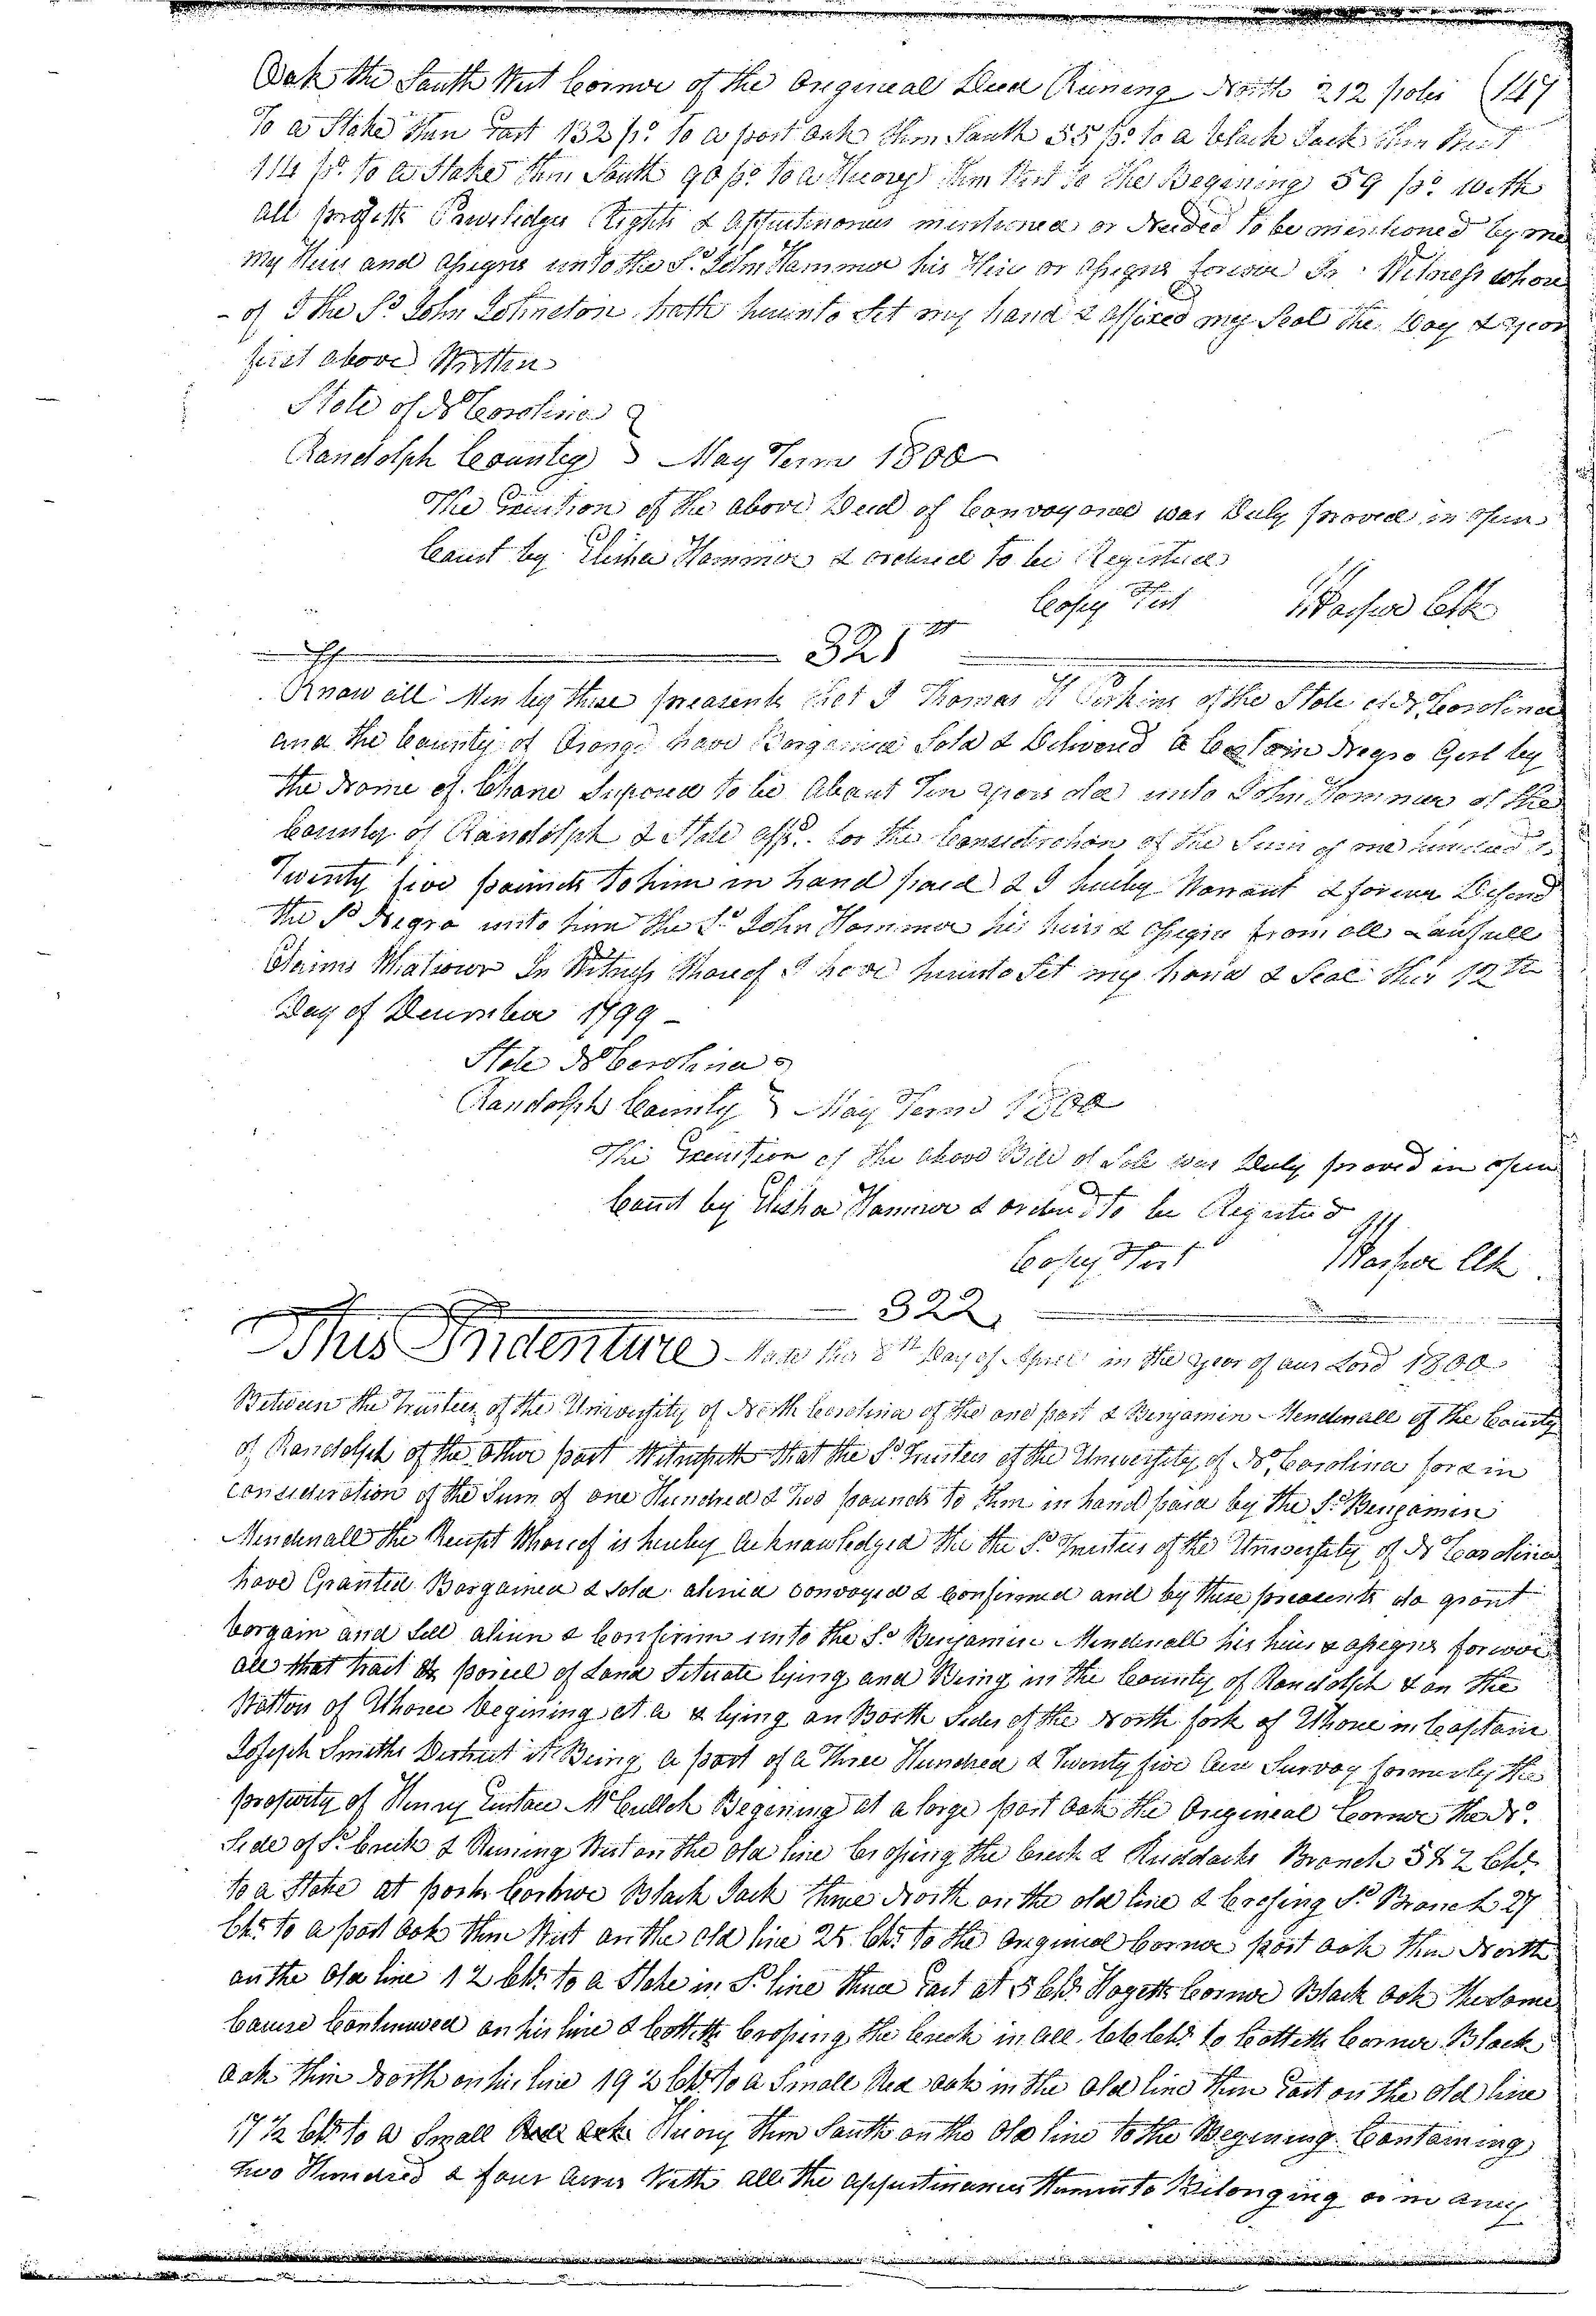 Oak the South West Cornor of the Origineal Deed Runing North 212 poles (147
To a Stake then East 132 po. to a post oak then South 55 po. to a black Jack then West
114 po. to a Stake then South 90 po. to a Hicory then West to the Begining 59 po. With
all profetts Previlidges Rights & Appurtinonces mentioned or Needed to be mentioned by me
My Heirs and Assigns unto the Sd. John Hammor his Heirs or Assigns forever In Witness whore
- of I the Sd John Johnston hath hereunto Set my hand & affixed my Seal the Day & year
first above Written
State of No Carolina
Randolph County May Term 1800
The Execution of the above Deed of Convoyance was Duly proved in open
Court by Elisha Hammor & ordered to be Registered
Copy Test Harper Clk
321st
Know all Men by these preasents that I Thomas H Perkins of the State of No. Carolina
and the County of Orange have Bargained Sold & Delivered a Certain Negro Girl by
the Name of Chane Suposed to be About Ten years old unto John Hommor of the
County of Randolph & State affd. for the Consideration of the Sum of one hundred &
Twenty five pounds to him in hand paid & I hereby Warrant & forever Defend
the Sd Negro unto him the Sd. John Hommor his heirs & Assigns from all Lawfull
Claims Whatsour In Witness Whereof I have hereunto Set my hand & Seal this 12th
Day of December 1799 -
State No Carolina
Randolph County May Term 1800
The Execution of the above Bill of Sale was Duly proved in open
Court by Elisha Hammor & ordered to be Registered
Copy Test Harper Clk
322
This Indenture Made this 8th Day of April in the year of our Lord 1800
Between the Trustees of the University of North Carolina of the one part & Benjamin Mendenall of the County
of Randolph of the other part Witnesseth that the Sd Trustees of the University of No. Carolina for & in
consideration of the Sum of one Hundred & Two pounds to them in hand paid by the Sd. Benjamin
Mendenall the Receipt Whereof is hereby Acknowledged the the Sd. Trustees of the University of No Carolina
have Granted Bargained & Sold aliened convoyed & Confirmed and by these preasents do grant
bargain and Sell alien & Confirim unto the Sd. Benjamin Mendenall his heirs & assigns forever
all that tract or parcel of Land Setuate lying and Being in the County of Randolph & on the
Watton of Uhorie begining at a & lying on Both Sides of the North fork of Uhorie in Captain
Joseph Smiths Destrict it Being a part of a Three Hundred & Twenty five Acre Survoy formerly the
property of Henry Eustace McCulloh Begining at a large post Oak the Origineal Cornor the No.
Side of Sd. Creek & Runing West on the old line Crossing the Creek & Ruddocks Branch 58 2 Chs.
to a Stake at post Cornor Black Jack thence North on the old line & Crossing Sd Branch 27
Chs. to a post Oak then West on the old line 25 Chs. to the Original Cornor post oak then North
on the old line 12 Chs. to a Stake in Sd. line thence East at 5 Chs. Hogetts Cornor Black Oak the Same
Course Continued on his line & Cotletts Crossing the Creek in all Chs. to Cotletts Cornor Black
Oak then North on his line 19 2 Chs. to a Small Red oak in the old line then East on the old line
17 1/2 Chs to a Small Hicory then South on the old line to the Begining Containing
two Hundred & four Acres With all the Appurtinances thereunto Belonging or in any